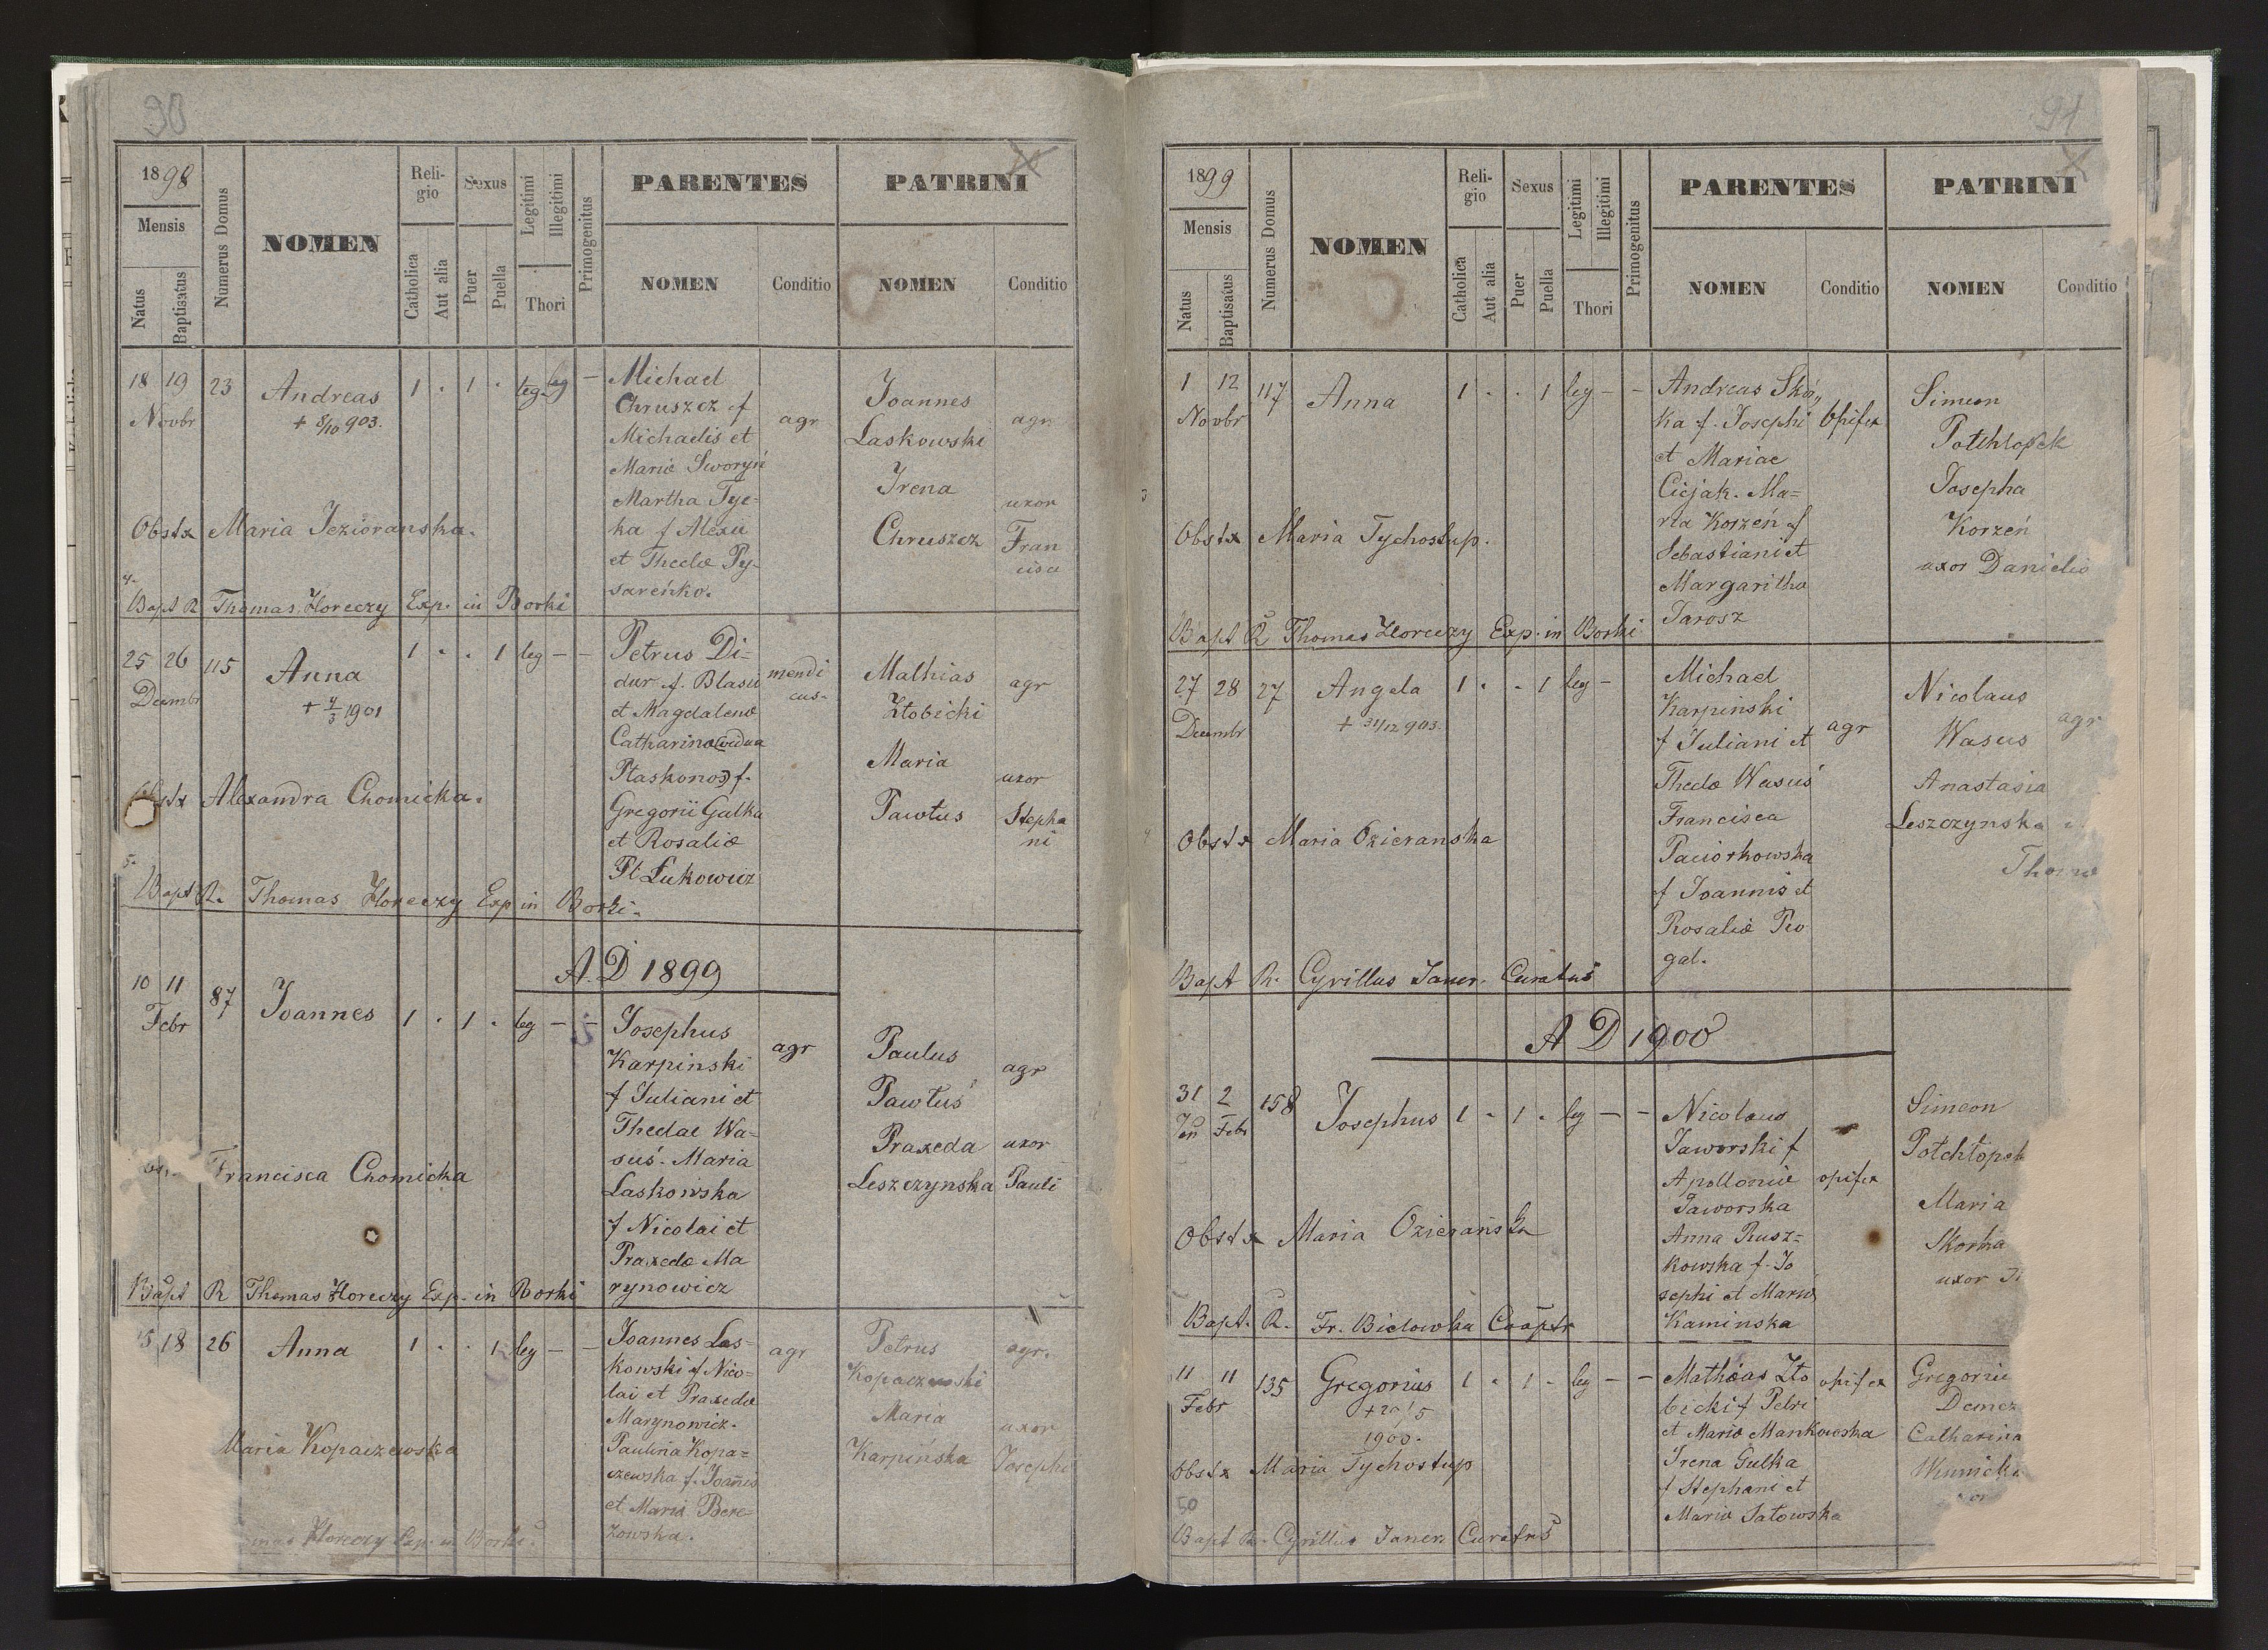 90
1898
Mensis
Natus
Baptisatus
Numerus Domus
NOMEN
Reli-
gio
Catholica
Aut alia
Sexus
Puer
Puella
Legitimi
Illegitimi
Thori
Primogenitus
PARENTES
NOMEN
Conditio
PATRINI
NOMEN
Conditio
18 19 23 Andreas 1 . 1 . leg leg –
Novbr
+ 8/10 903.
Michael
Chruszcz f
Michaelis et
Mariæ Sworyń
Martha Tyc-
ka f Alexii
et Theclæ Py-
sareńko.
agr
Joannes
Laskowski
agr
Irena
Chruszcz
uxor
Fran
cisci
Obstx Maria Jezioranska.
4.
Bapt R Thomas Horeczy Exp. in Borki
25 26 115 Anna 1 . . 1 leg – –
Decembr
+ 4/3 1901
Petrus Di-
dur f. Blasii
et Magdalenæ
Catharina (vidua
Ptaskonos) f.
Gregorii Gulka
et Rosaliæ
Pt Łukowicz
mendi
cus.
Mathias
Złobicki
agr
Maria
Pawłus
uxor
Stepha
ni
Alexandra Chomicka.
5.
Bapt R. Thomas Horeczy Exp in Borki.
A.D 1899
10 11 87 Joannes 1 . 1 . leg – –
Febr
Josephus
Karpinski
f Juliani et
Theclae Wa-
suś. Maria
Laskowska
f Nicolai et
Praxedæ Ma
rynowicz
agr
Paulus
Pawłuś
agr
Praxeda
Leszczynska
uxor
Pauli
Francisca Chomicka
Bapt R Thomas Horeczy Exp. in Borki
15 18 26 Anna 1 . . 1 leg – –
Joannes Las-
kowski f Nico-
lai et Praxedæ
Marynowicz.
Paulina Kopa-
czewska f. Joannis
et Mariæ Bere-
zowska.
agr
Petrus
Kopaczewski
agr.
Maria
Karpińska
uxor
Josephi
Maria Kopaczewska
Horeczy Exp. in Borki.
91
1899
Mensis
Natus
Baptisatus
Numerus Domus
NOMEN
Reli-
gio
Catholica
Aut alia
Sexus
Puer
Puella
Legitimi
Illegitimi
Thori
Primogenitus
PARENTES
NOMEN
Conditio
PATRINI
NOMEN
Conditio
1 12 117 Anna 1 . . 1 leg – –
Novbr
Andreas Skór„
ka f. Josephi
et Mariae
Cicjak. Ma-
ria Korzeń f
Sebastiani et
Margaritha
Jarosz
Opifex
Simeon
Potchlopek
Josepha
Korzeń
uxor Danielis
3
Obstx Maria Tychostup.
Bapt R Thomas Horeczy Exp. in Borki
27 28 27 Angela 1 . . 1 leg –
Decembr
+ 31/12 903.
Michael
Karpinski
f Juliani et
Theclæ Wasuś
Francisca
Paciorkowska
f Joannis et
Rosaliæ Ro
gal.
agr
Nicolaus
Wasus
agr
Anastasia
Leszczynska
4
Obstx Maria Ozieranska
Bapt R. Cyrillus Janer. Curatus
A D 1900
31 2 158 Josephus 1 . 1 . leg – –
Jan Febr
Nicolaus
Jaworski f
Apolloniæ
Jaworska
Anna Rusz-
kowska f. Jo
sephi et Mariæ
Kaminska
opifex
Simeon
Potchłopek
Maria
Skorka
uxor
Obstx Maria Ozierańska
Bapt. R. Fr. Bielowka Cooptr
11 11 135 Gregorius 1 . 1 . leg – –
Febr
1900.
Mathias Zło
bicki f Petri
et Mariæ Mankowska
Irena Gulka
f Stephani et
Mariæ Jatowska
opifex
Gregorii
Catharina
Obstx Maria Tychostup
50
Bapt R. Cyrillus Janer Curatus